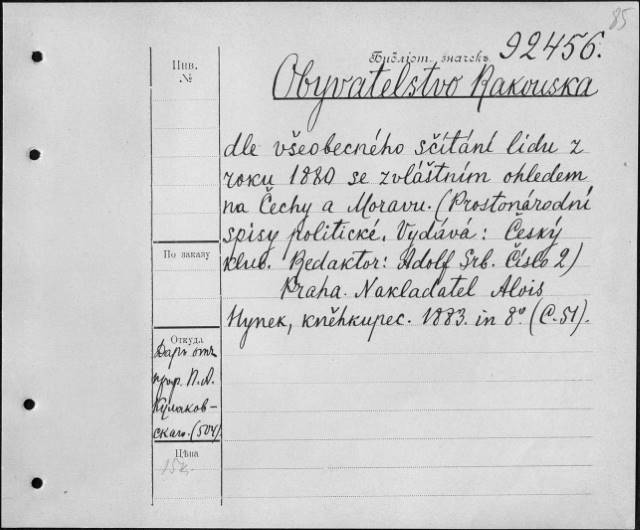 85
Инв.
№
Библіот. значекъ 92456.
Obyvatelstvo Rakouska
dle všeobecného sčítání lidu z
roku 1880 se zvláštním ohledem
na Čechy a Moravu. (Prostonárodní
spisy politické. Vydává: Český
klub. Redaktor: Adolf Srb. Číslo 2)
Praha. Nakladatel Alois
Hynek, kněhkupec. 1883. in 8º (C. 51).
По заказу
Откуда
Даръ отъ
проф. П. А.
Кулаков-
скаго. (504).
Цѣна
15к.